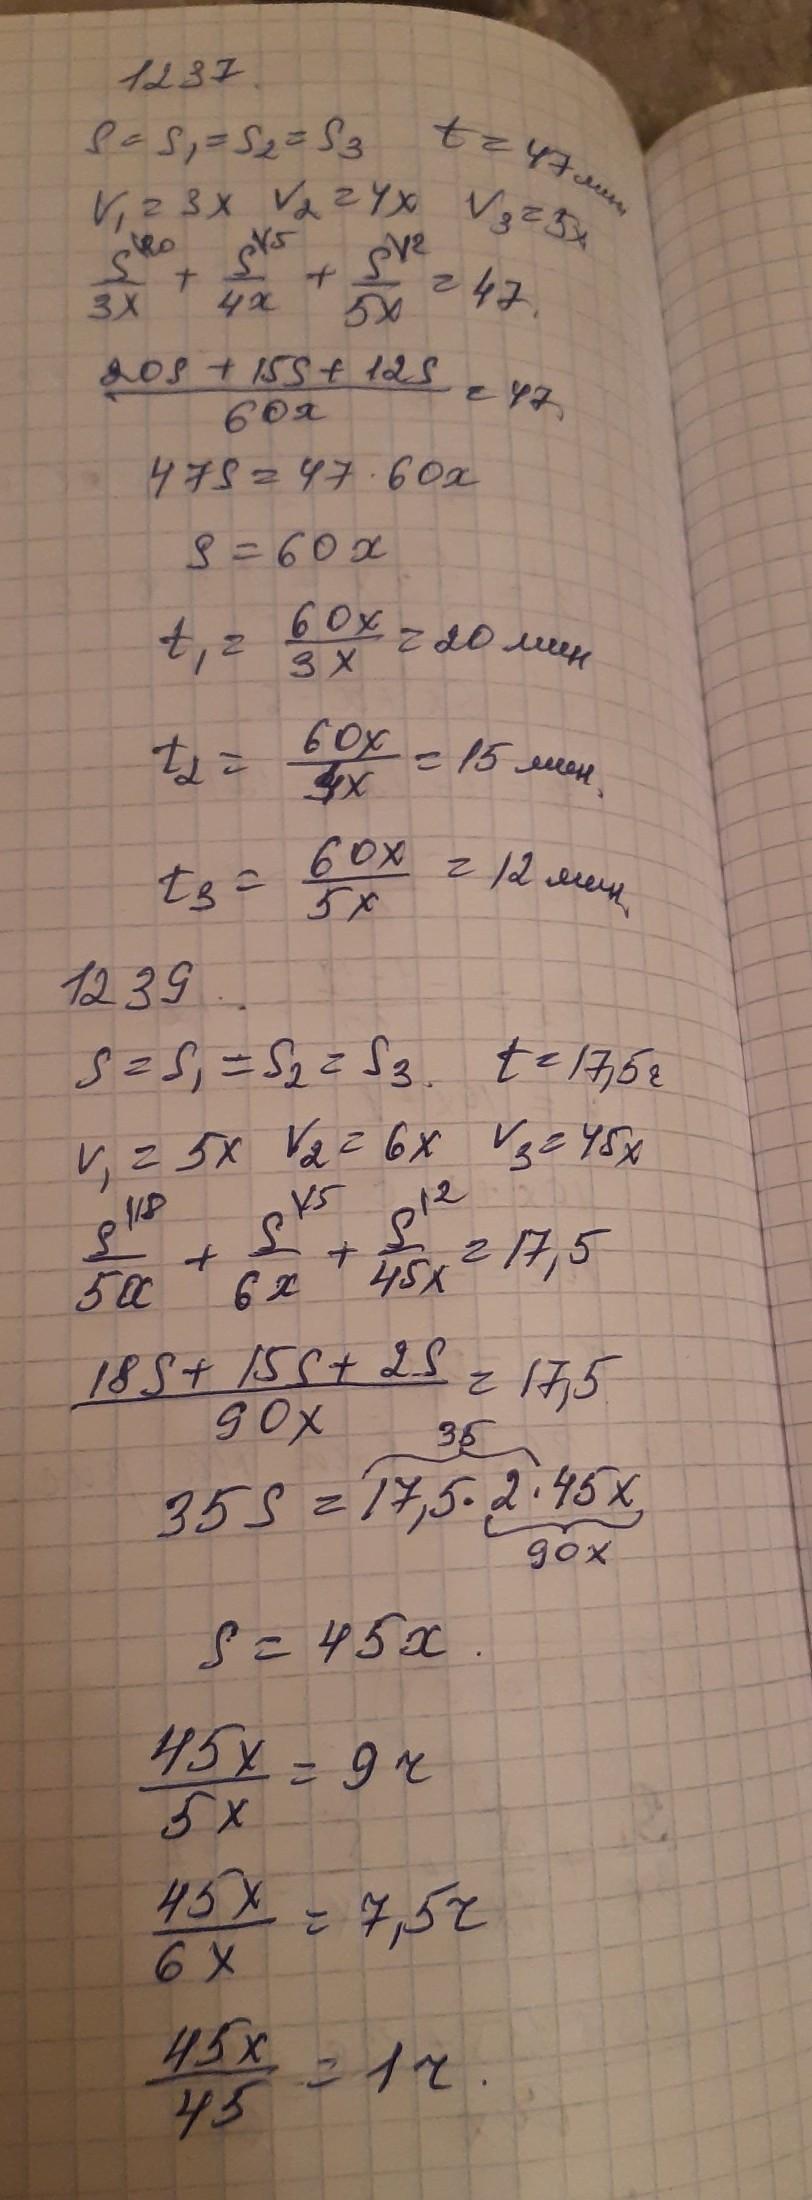 1237.
S = S₁ = S₂ = S₃ t = 47 мин
V₁ = 3x V₂ = 4x V₃ = 5x
S\20/3x + S\15/4x + S\12/5x = 47.
20S + 15S + 12S / 60x = 47.
47S = 47 · 60x
S = 60x
t₁ = 60x/3x = 20 мин
t₂ = 60x/4x = 15 мин.
t₃ = 60x/5x = 12 мин.
1239.
S = S₁ = S₂ = S₃. t = 17,5ч
V₁ = 5x V₂ = 6x V₃ = 45x
S\18/5x + S\15/6x + S\2/45x = 17,5
18S + 15S + 2S / 90x = 17,5
35
35S = 17,5 · 2 · 45x
90x
S = 45x.
45x/5x = 9ч
45x/6x = 7,5ч
45x/45 = 1ч.